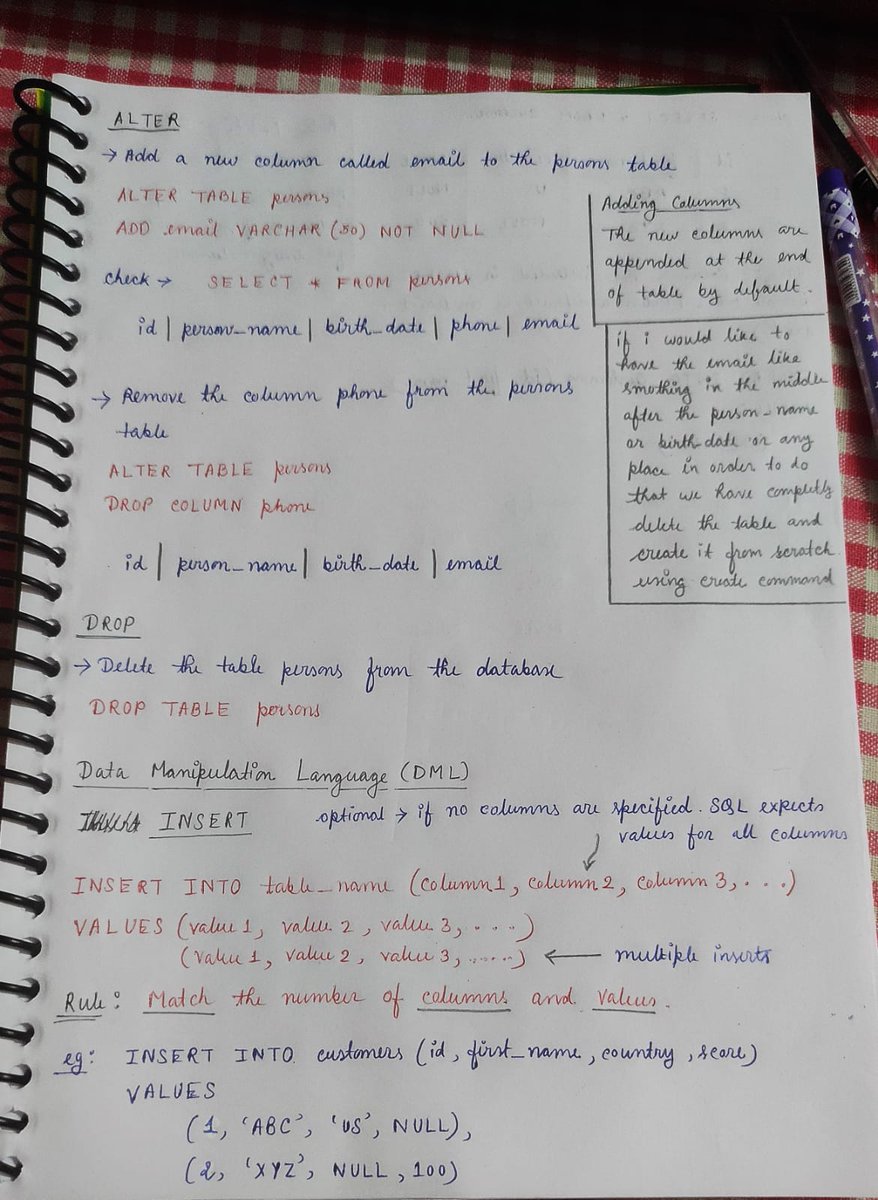 ALTER
→ Add a new column called email to the persons table
ALTER TABLE persons
ADD email VARCHAR (50) NOT NULL
check → SELECT * FROM persons
id | person_name | birth_date | phone | email
→ Remove the column phone from the persons
table
ALTER TABLE persons
DROP COLUMN phone
id | person_name | birth_date | email
Adding Columns
The new columns are
appended at the end
of table by default.
if i would like to
have the email like
smothing in the middle
after the person_name
or birth_date or any
place in order to do
that we have completly
delete the table and
create it from scratch
using create command
DROP
→ Delete the table persons from the database
DROP TABLE persons
Data Manipulation Language (DML)
INSERT
optional → if no columns are specified. SQL expects
values for all columns
INSERT INTO table_name (column1, column2, column 3, ...)
VALUES (value 1, value 2, value 3, ....)
(value 1, value 2, value 3, .....) ← multiple inserts
Rule: Match the number of columns and values.
eg: INSERT INTO customers (id, first_name, country, score)
VALUES
(1, 'ABC', 'US', NULL),
(2, 'XYZ', NULL, 100)